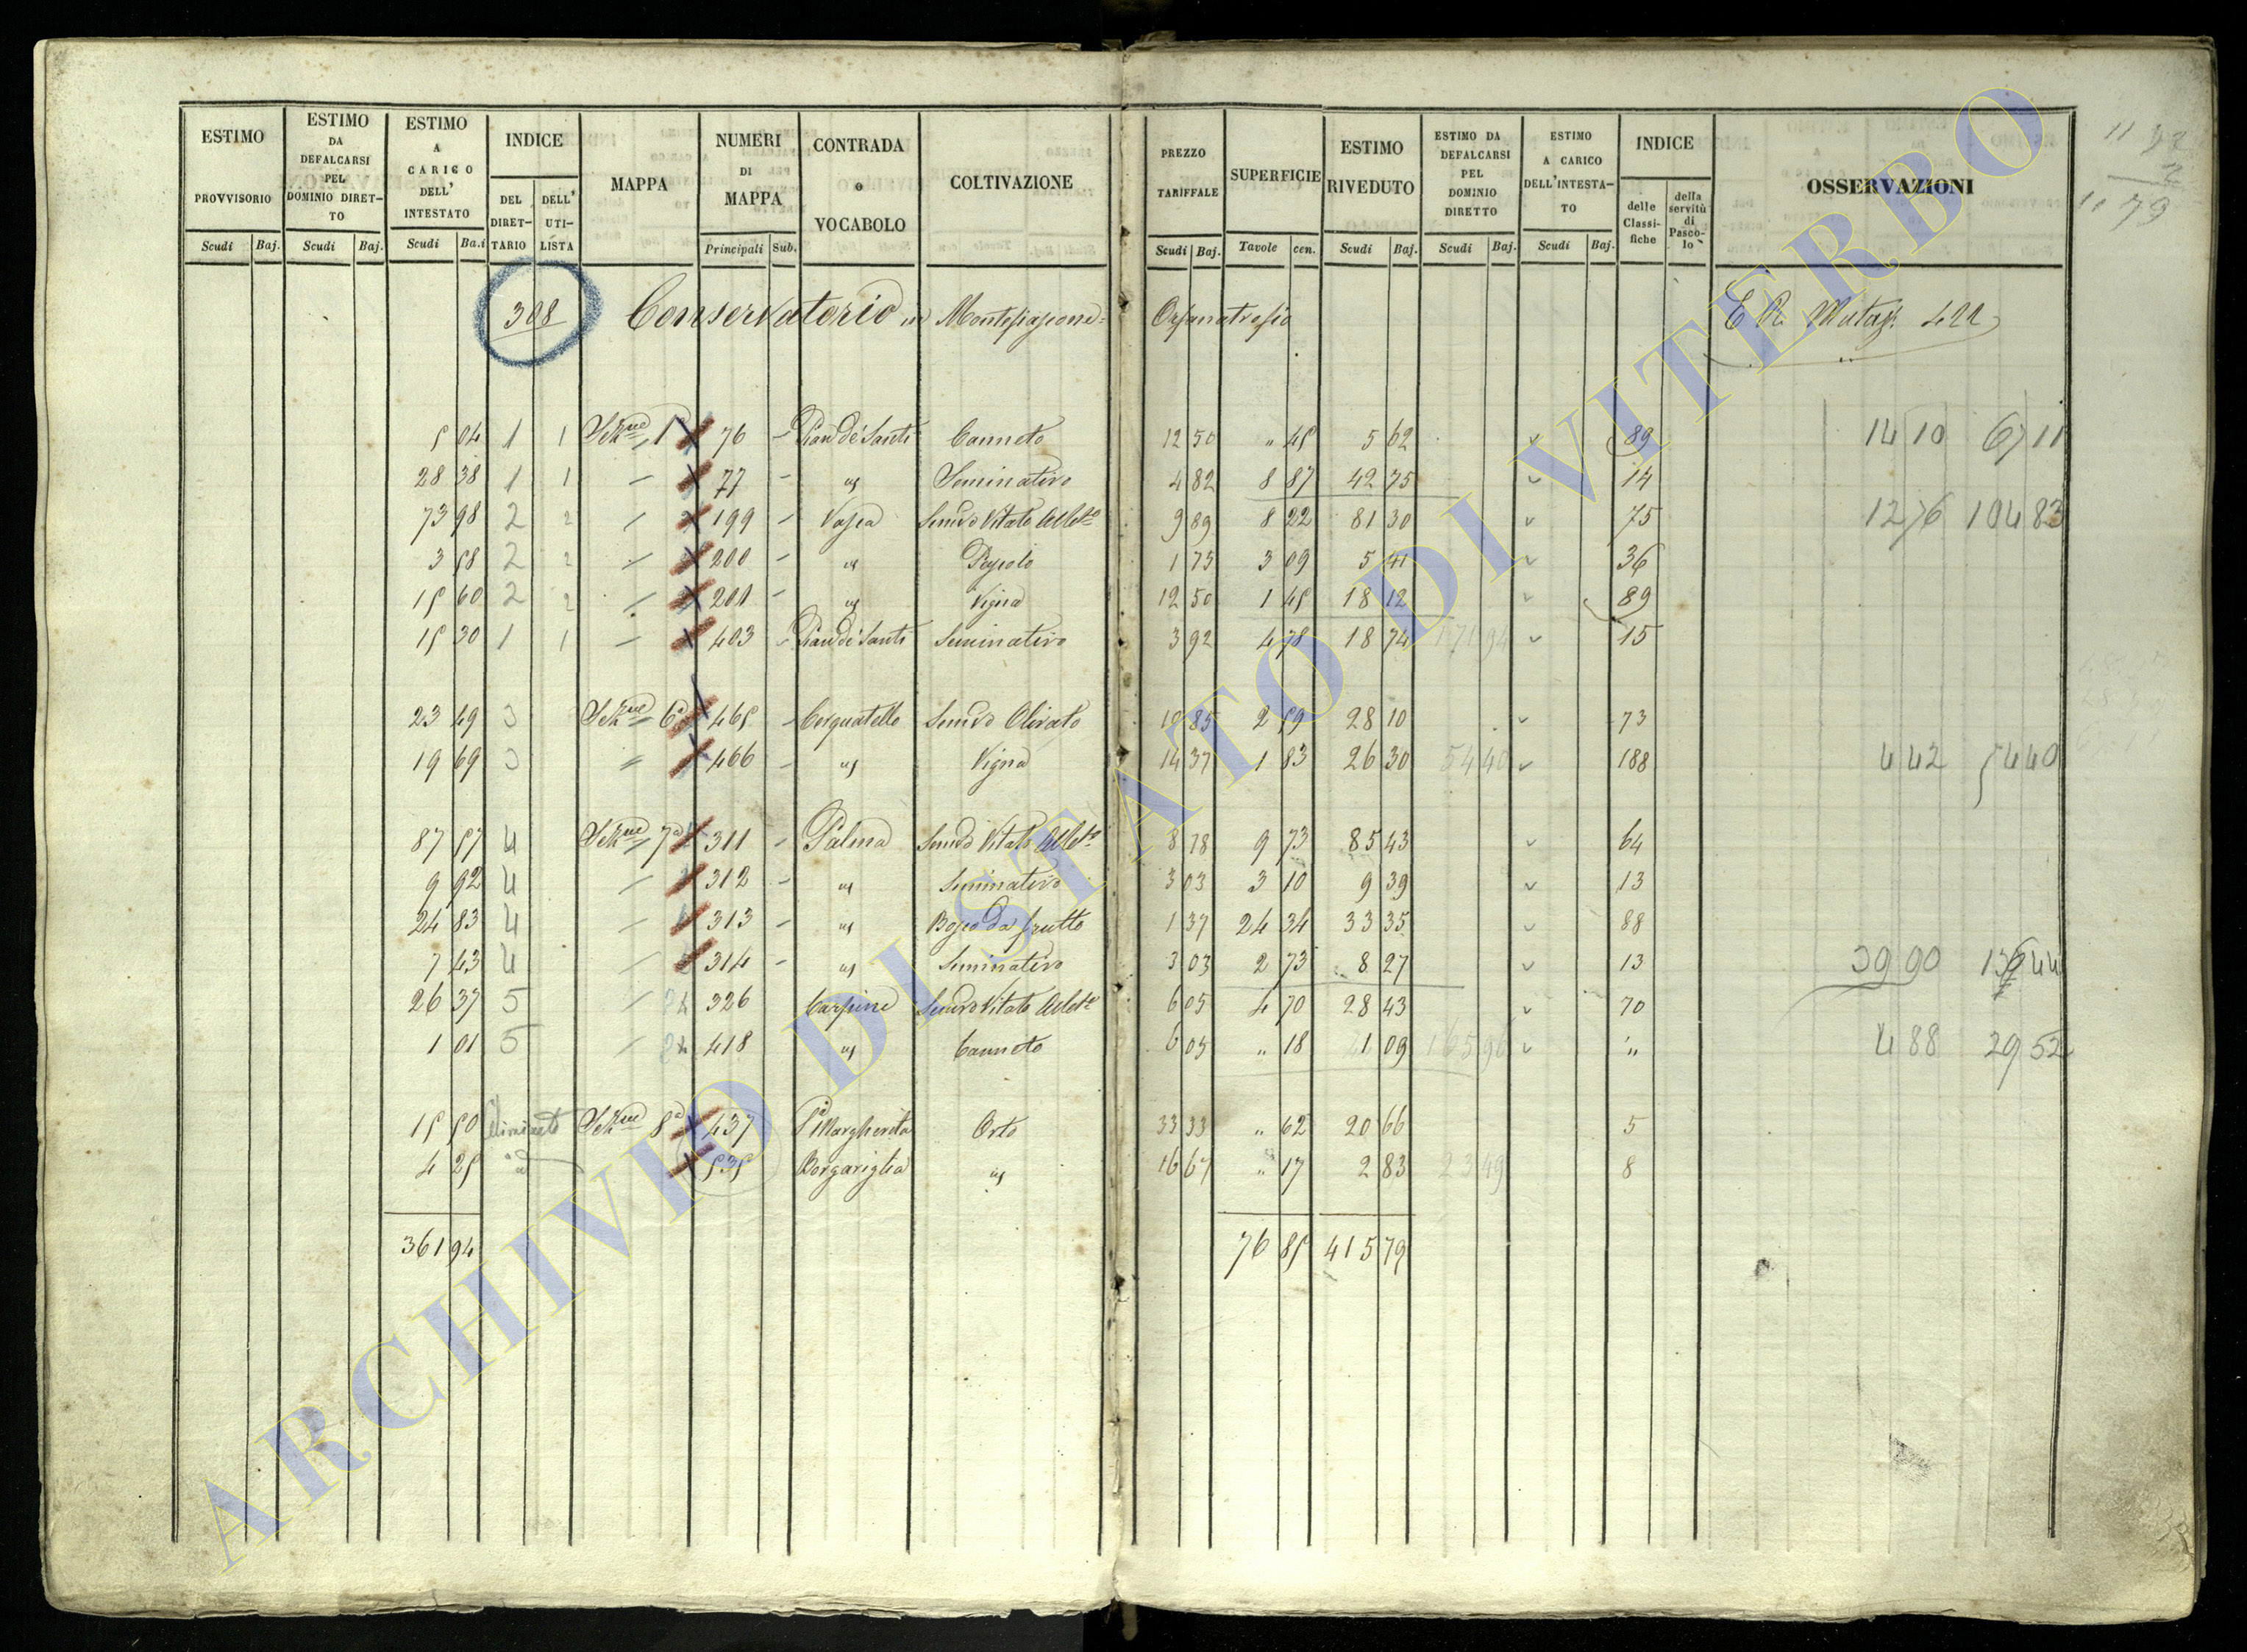 ESTIMO PROVVISORIO Scudi Baj.
ESTIMO DA DEFALCARSI PEL DOMINIO DIRETTO Scudi Baj.
ESTIMO A CARICO DELL' INTESTATO Scudi Ba.i
INDICE DEL DIRETTARIO DELL' UTILISTA
MAPPA
NUMERI DI MAPPA Principali Sub.
CONTRADA o VOCABOLO
COLTIVAZIONE
PREZZO TARIFFALE Scudi Baj.
SUPERFICIE Tavole cen.
ESTIMO RIVEDUTO Scudi Baj.
ESTIMO DA DEFALCARSI PEL DOMINIO DIRETTO Scudi Baj.
ESTIMO A CARICO DELL'INTESTATO Scudi Baj.
INDICE delle Classifiche della servitù di Pascolo
OSSERVAZIONI
308 Conservatorio in Montefiascone= Orfanatrofio
5 04 1 1 Sezne 1a 76 - Pian de Santi Canneto 12 50 " 45 5 62 89 14 10 67 11
28 38 1 1 - 77 - us Seminativo 4 82 8 87 42 75 14
73 98 2 2 - 199 - Semvo Vitato Albto 9 89 8 22 81 30 75 12 76 104 83
3 58 2 2 - 200 - us 1 75 3 09 5 41 36
15 60 2 2 - 201 - us Vigna 12 50 1 45 18 12 89
15 30 1 1 - 403 - Pian de Santi Seminativo 3 92 4 78 18 74 171 94 15
23 49 3 Sezne 6a 465 - Cerquatello Semvo Olivato 10 85 2 59 28 10 73
19 69 3 " 466 - us Vigna 14 37 1 83 26 30 54 40 188 4 42 54 40
87 57 4 Sezne 7a 311 - Palma Semvo Vitato Albto 8 78 9 73 85 43 64
9 92 4 - 312 - us Seminativo 3 03 3 10 9 39 13
24 83 4 - 313 - us Bosco da frutto 1 37 24 34 33 35 88
7 43 4 - 314 - us Seminativo 3 03 2 73 8 27 13 39 90 136 44
26 37 5 - 326 Carpine Semvo Vitato Albto 6 05 4 70 28 43 70
1 01 5 - 418 us Canneto 6 05 " 18 1 09 165 96 " 4 88 29 52
15 50 Sezne 8a 437 Sa Margherita Orto 33 33 " 62 20 66 5
4 25 535 Borgariglia us 16 67 " 17 2 83 23 49 8
361 94 76 85 415 79
ARCHIVIO DI STATO DI VITERBO